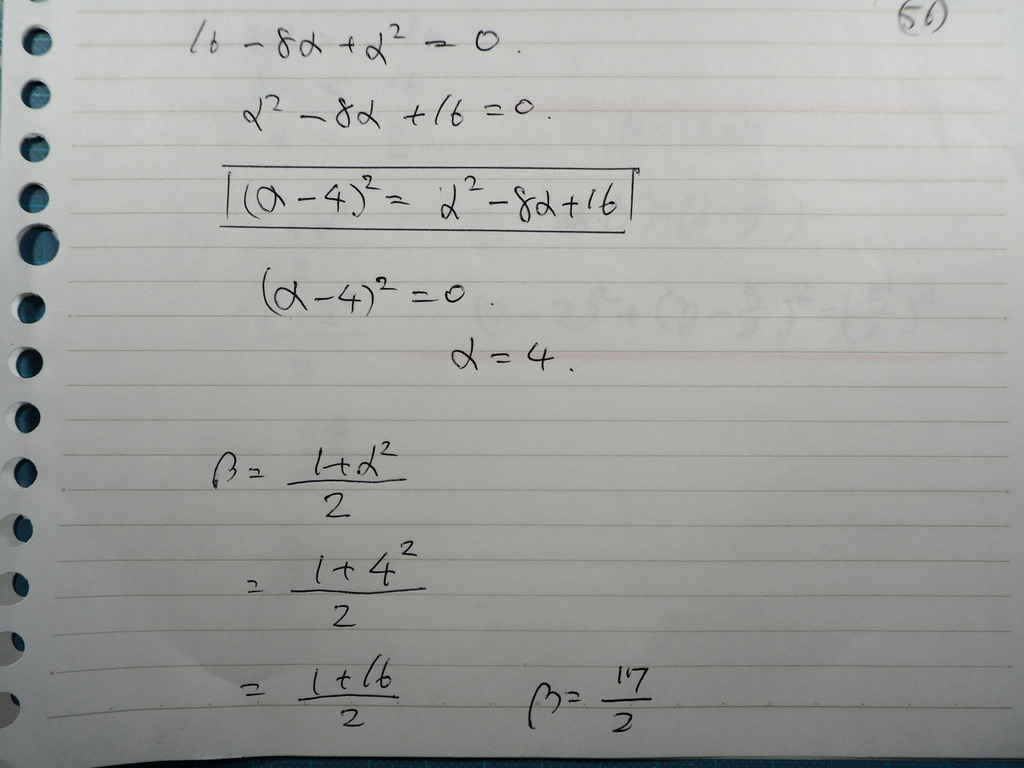 (56)
16 - 8α + α² = 0.
α² - 8α + 16 = 0.
(α - 4)² = α² - 8α + 16
(α - 4)² = 0.
α = 4.
β = (1 + α²)/2
= (1 + 4²)/2
= (1 + 16)/2 β = 17/2